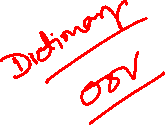 Dictionary
OOV